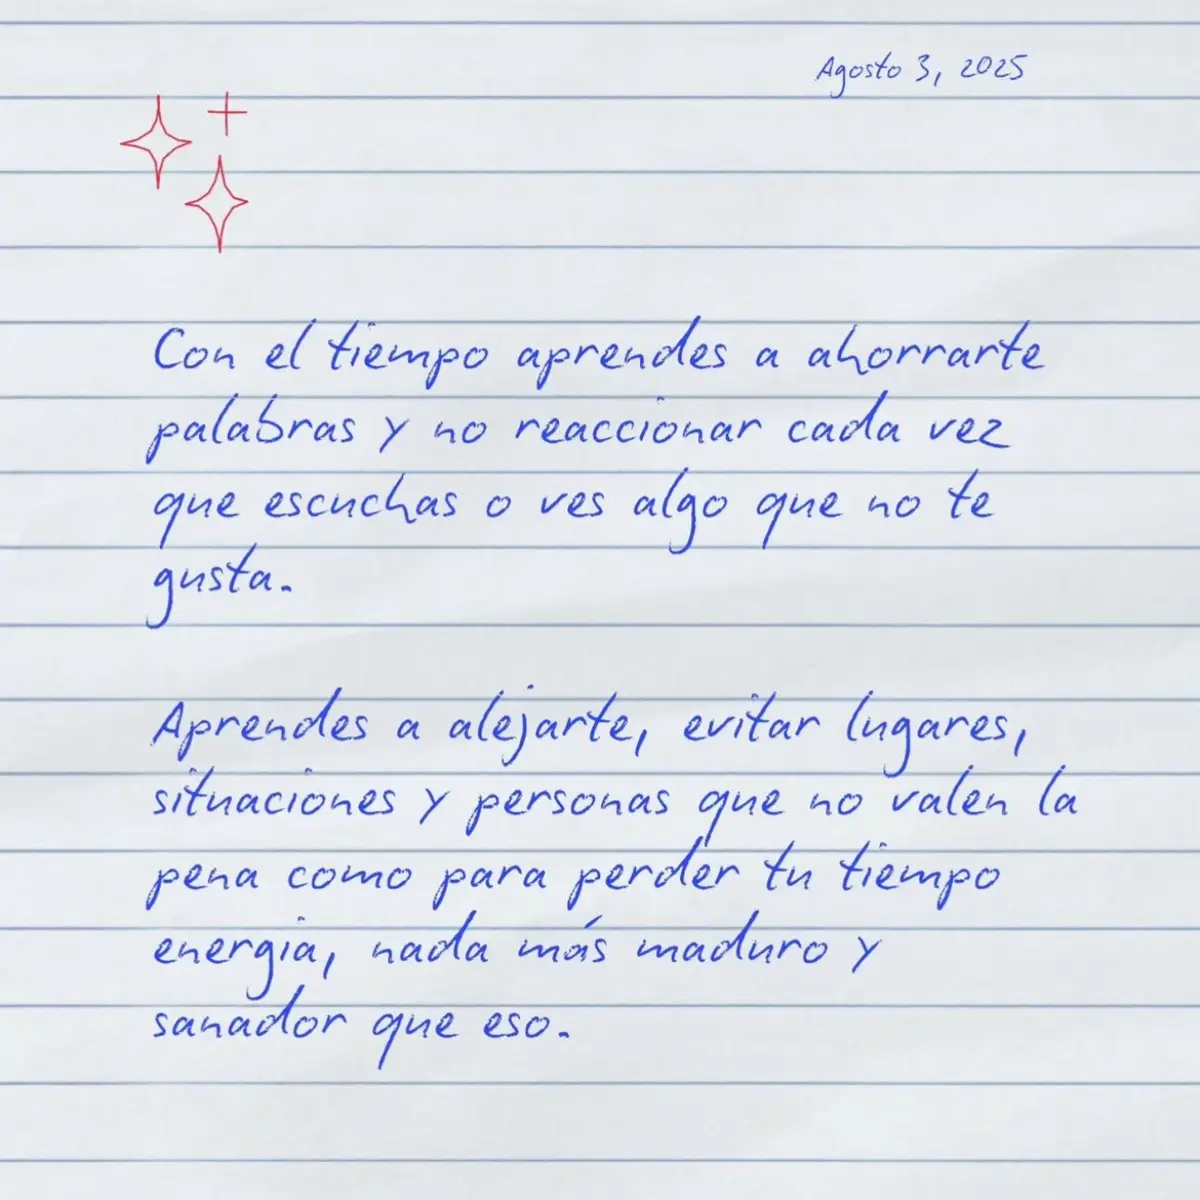 Agosto 3, 2025
Con el tiempo aprendes a ahorrarte
palabras y no reaccionar cada vez
que escuchas o ves algo que no te
gusta.
Aprendes a alejarte, evitar lugares,
situaciones y personas que no valen la
pena como para perder tu tiempo
energia, nada más maduro y
sanador que eso.